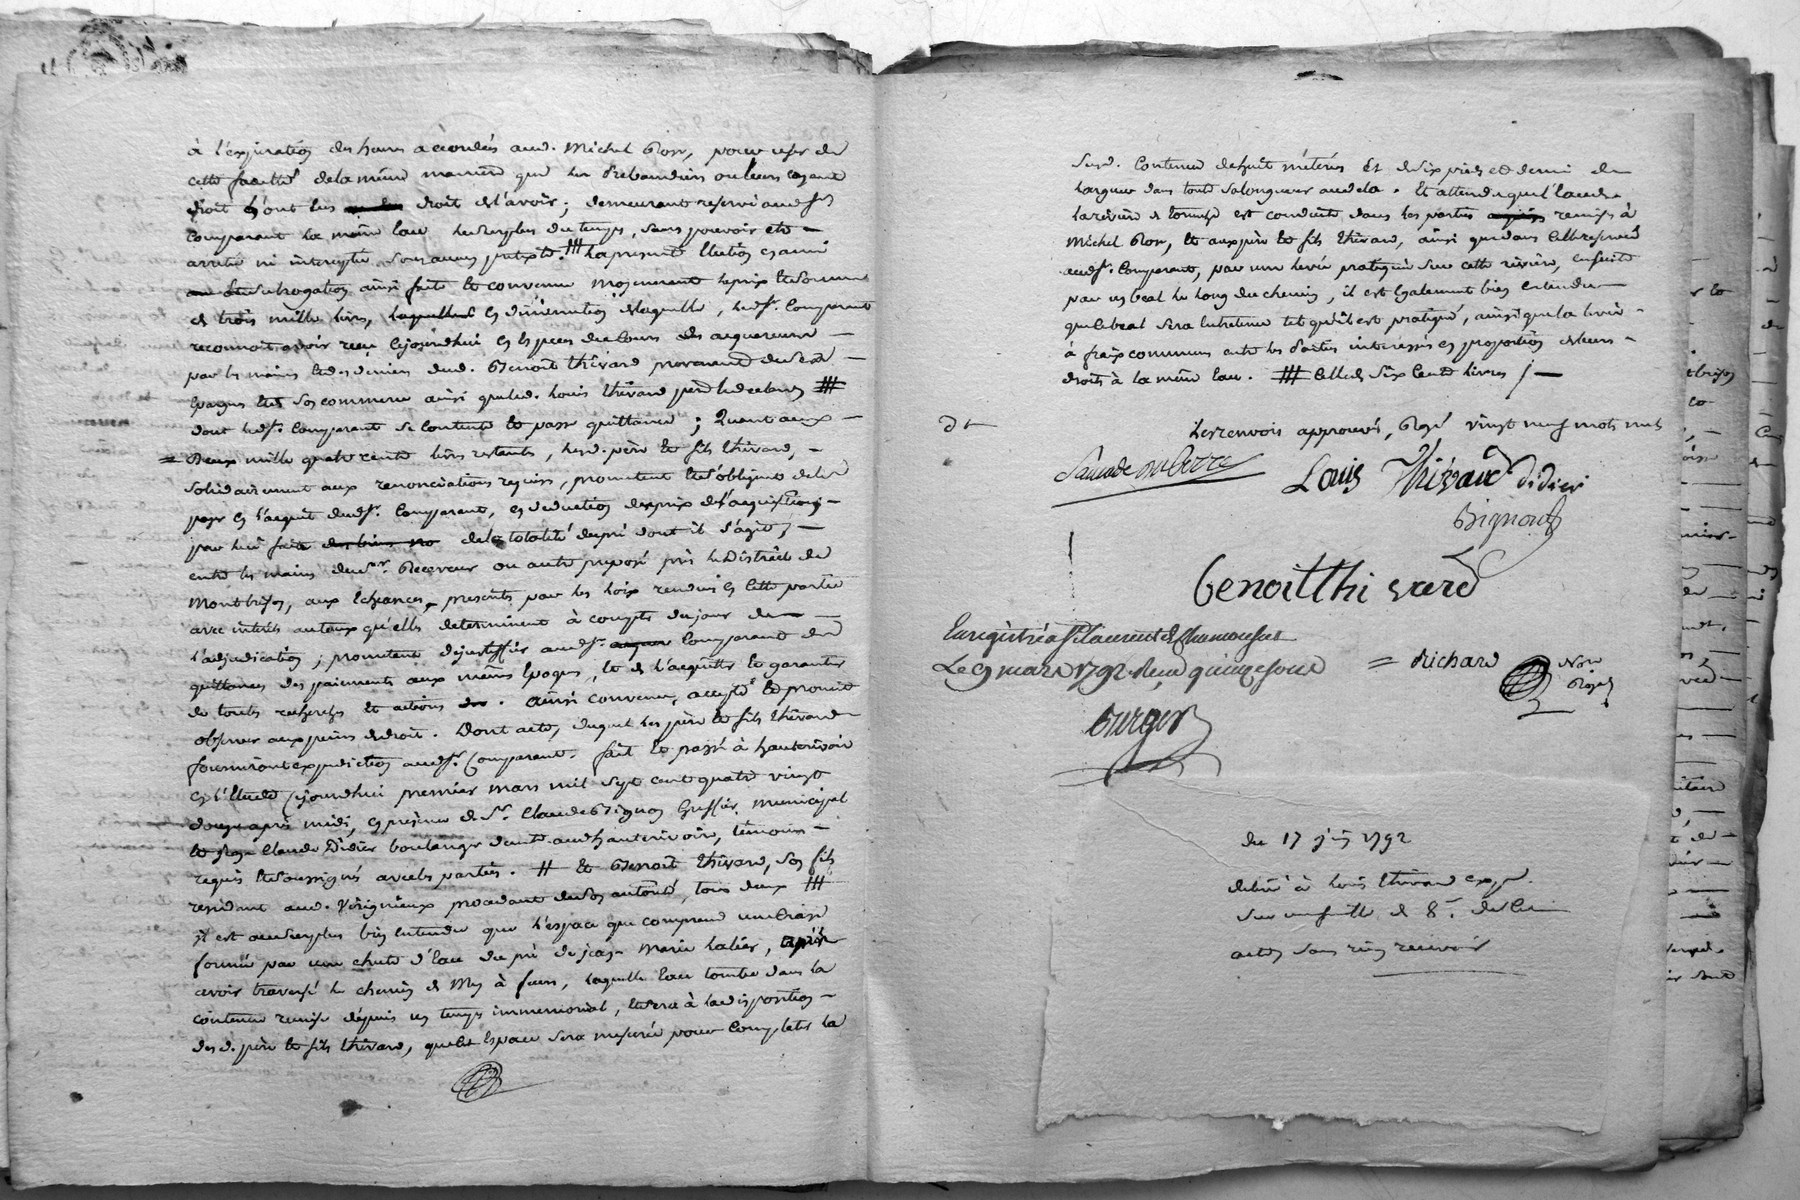 à l'expiration des heures accordées aud. Michel Rosy, pour user de
cette faculté de la même manière que les Prebandiers ou leurs ayant
droit ont eus droit de l'avoir; demeurant reservé aud Sr
Comparant la même eau le surplus du temps, sans pouvoir etre
arreté ni intercepté sous aucun pretexte. la presente Election en ami
subrogation ainsi faite et convenue moyenant le prix et somme
de trois mille livres, en diminution de laquelle, led Sr. Comparant
reconnoit avoir reçu cejourdhui en especes de cours des acquereurs
par les mains et des deniers dud. Benoit thévard provenand de ses
Epargnes et de son commerce ainsi que led. Louis thévard père le declare
dont led Sr. Comparant se contente et passe quittance; Quant aux
Deux mille quatre cents livres restants, lesd. père et fils thévard,
solidairement aux renonciations requises, promettent et s'obligent de les
payer en l'acquit dud Sr. Comparant, en deduction du prix de l'acquisition
par lui faite de la totalité du pré dont il s'agit,
entre les mains du Sr. Receveur ou autre preposé près le District de
Montbrison, aux Echeances prescrites par les loix rendues en cette partie
avec interets au taux qu'elles determinent à compter du jour de
l'adjudication; promettent de justiffier aud Sr. Comparant des
quittances des paiements aux mêmes Epoques, et de l'acquitter et garantir
de toutes recherches et actions. ainsi convenu, accepté et promis
observer aux peines de droit. Dont acte, duquel les père et fils thévard
fourniront expedition aud Sr. Comparant. fait et passé à hauterivoir
en l'Etude Cejourdhui premier mars mil sept cent quatre vingt
douze après midi, en présence de Sr. Claude Bignon Greffier municipal
et Claude Didier boulanger dud. hauterivoire, témoins
requis et soussignés avec les parties. # et Benoit thévard, son fils
residant aud. Virignieux procedant de son autorité, tous deux ###
il est au surplus bien entendu que l'espace que comprend
formé par une chute d'eau du pré de jean Marie après
avoir traversé le chemin de laquelle eau tombe dans la
contenue remise depuis un temps immemorial, et sera à la disposition
desd. père et fils thévard, que cet Espace sera mesuré pour completer la
susd. Contenue de huit métérés Et de six pieds et demi de
largeur dans toute sa longueur au dela. Et attendu que l'eau de
la rivière de est conduite dans les parties remises à
Michel Rosy, et aux père et fils thévard, ainsi que dans celle reservée
aud Sr. Comparant, par une levée pratiquée sur cette rivière, ensuite
par un beal le long du chemin, il est Egalement bien entendu
que le beal sera Entretenu tel qu'il est pratiqué, ainsi que la levée
à fraix communs entre les Parties interessées en proportion de leurs
droits à la même Eau. ### Celle de Six Cents livres
Les renvois approuvés, Rayé vingt neuf mots nuls
Louis Thévard didier
Bignon
benoit thi vard
Enregistré à St. laurent de Chamousset
Le 9 mars 1792 Reçu quinze sous
= Richard
Nore
Royal
du 17 juin 1792
delivré à Louis thévard exp.
sur de
actes sans rien recevoir